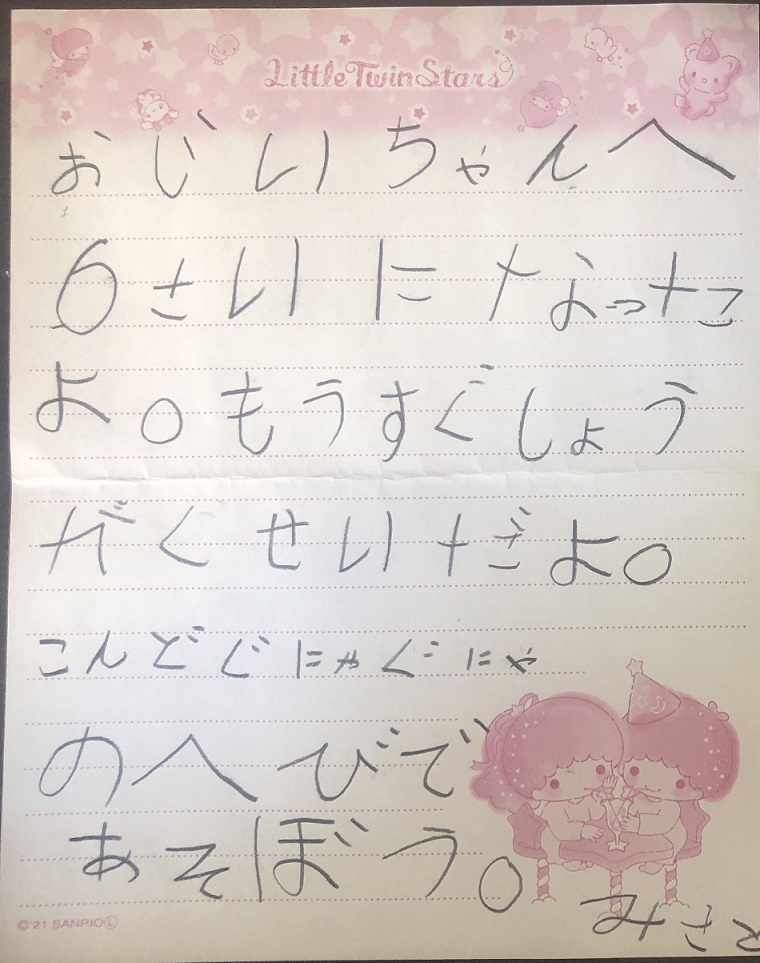 LittleTwinStars
おじいちゃんへ
6さいになった
よ。もうすぐしょう
がくせいだよ。
こんどぐにゃぐにゃ
のへびで
あそぼう。
みさと
©'21 SANRIO Ⓛ